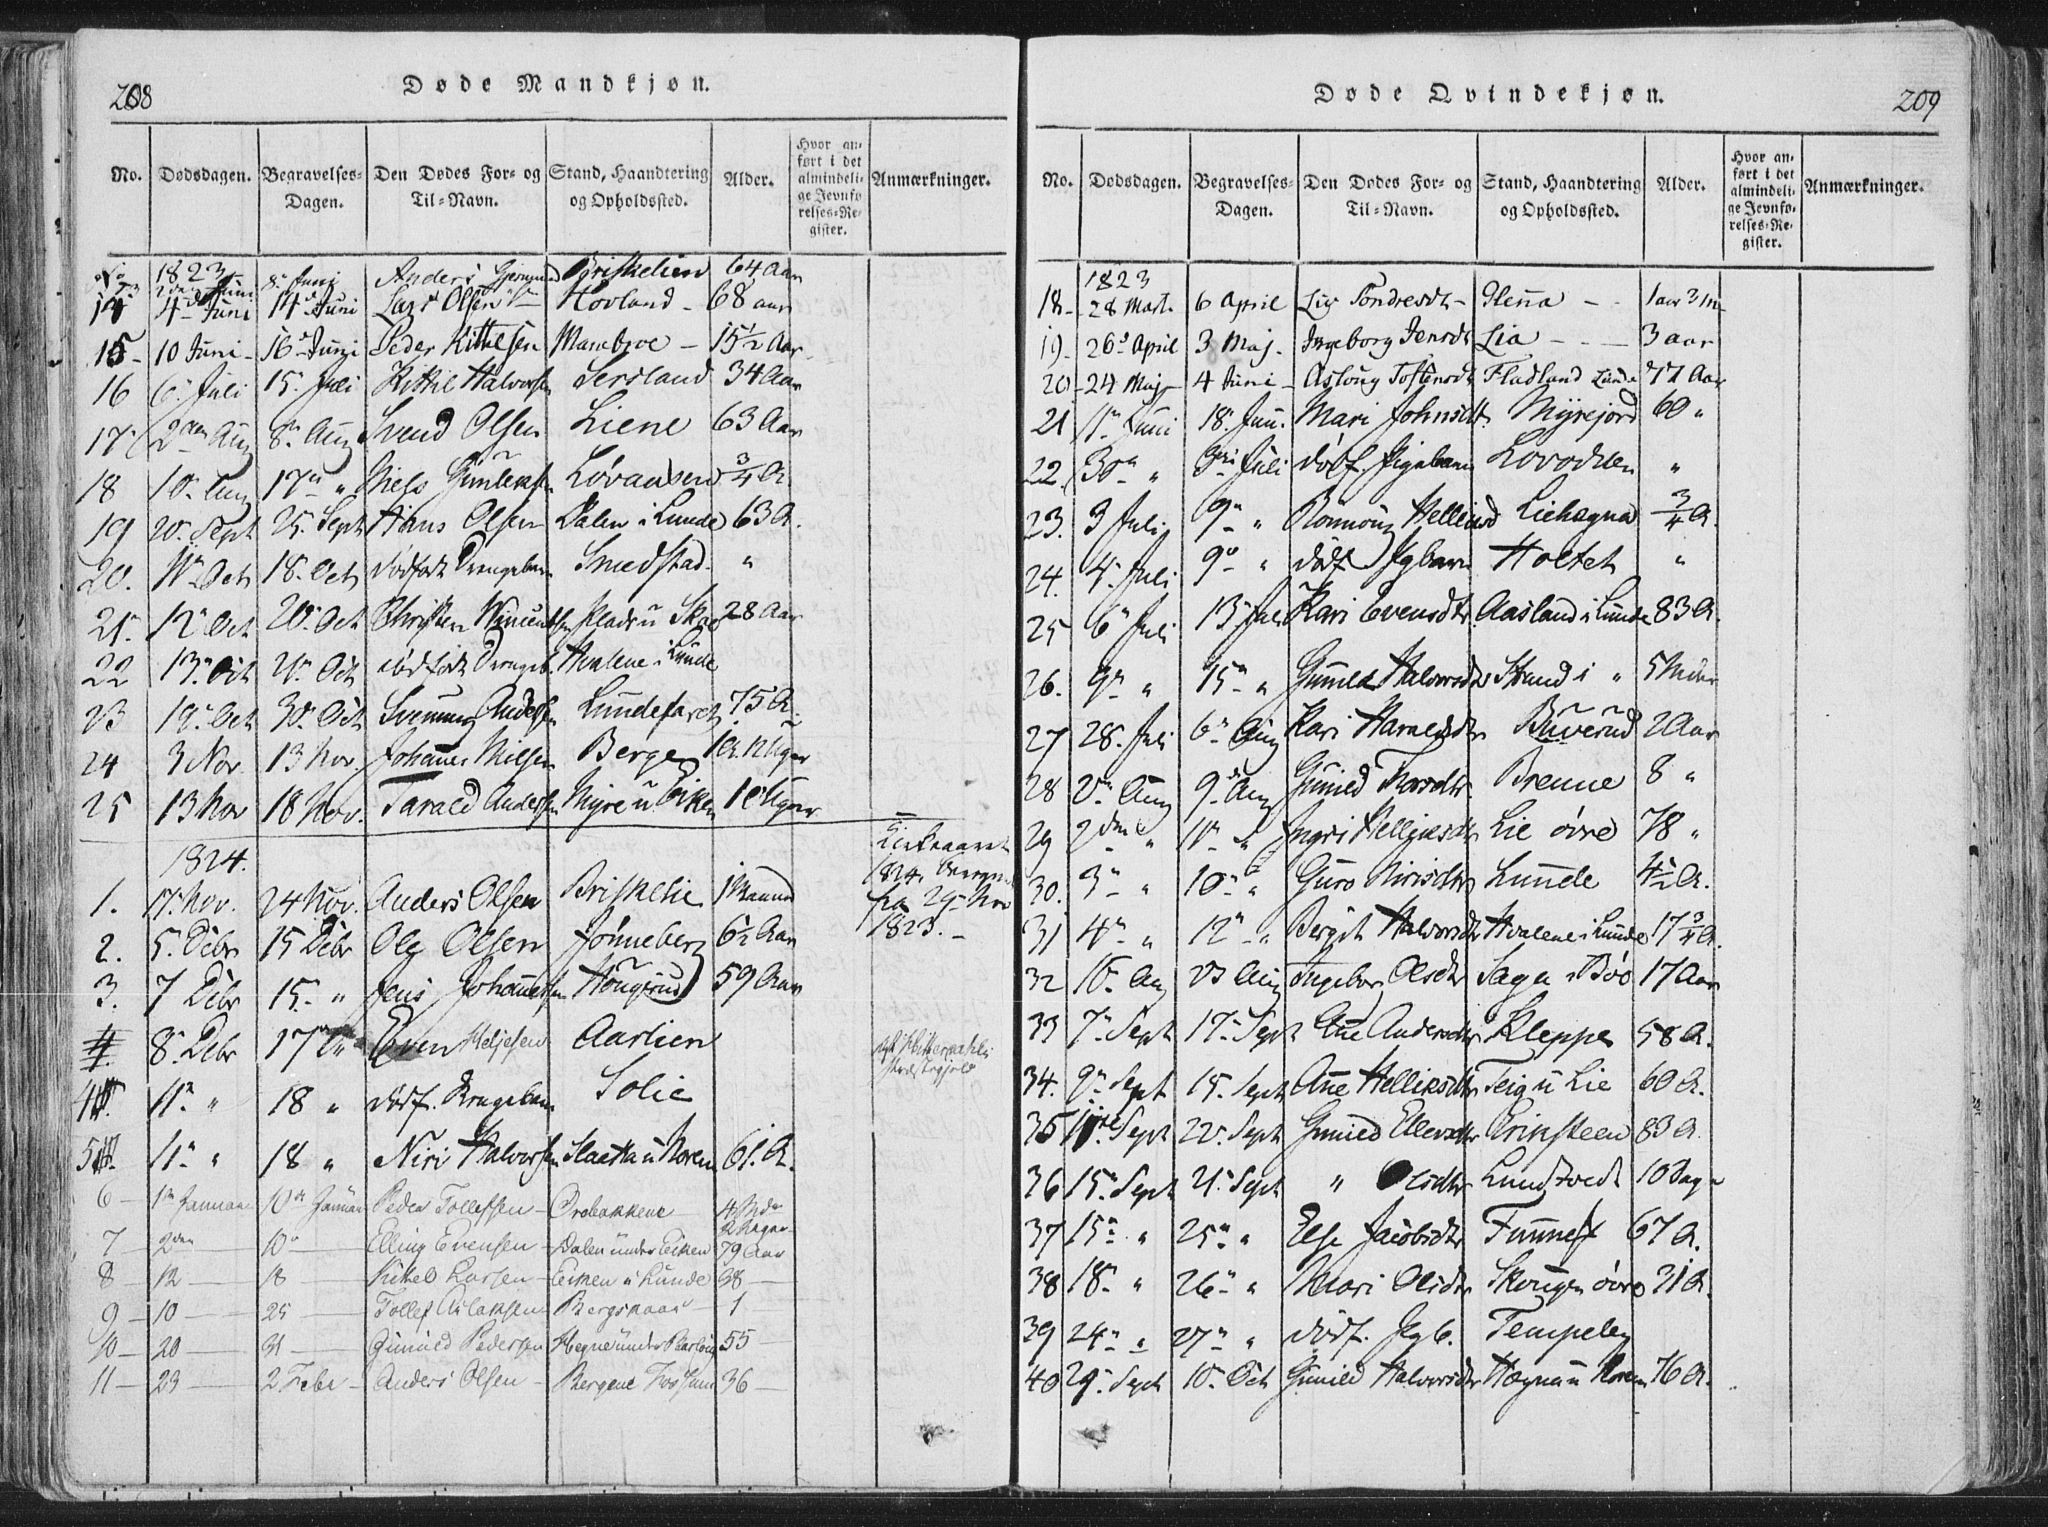 208
Døde Mandkjøn.
No. Dødsdagen. Begravelses-Dagen. Den Dødes For- og Til-Navn. Stand, Haandtering og Opholdssted. Alder. Hvor anført i det almindelige Jevnførelses-Register. Anmærkninger.
1823
Juni 8 Juni Anders Briskelien 64 Aar
14 4 Juni 14 Juni Lars Olsen Hovland - 68 aar
15 - 10 Juni - 16 Juni Peder Kittelsen - 15½ Aar
16 6 Juli 15 Juli Kittil Halvorsen Sersland 34 Aar
17 2den Aug 8 Aug Svend Olsen Liene 63 Aar
18 10 Aug 17 " Niels Løvaasen ¾ A.
19 20 Sept 25. Sept Hans Olsen Dalen i Lunde 63 A.
20. 11 Oct 18. Oct dødfødt Drengebarn Smedstad "
21. 12 Oct 20. Oct Christen 28 Aar
22 13. Oct 21. Oct dødfødt Drengeb. Hvalene i Lunde
23 19. Oct 30. Oct Svenung Andersen Lundefaret 75 A.
24 3 Nov. 13 Nov. Johannes Nilsen Berge
25 13 Nov 18 Nov. Tarald Andersen Myre u Eiken
1824.
1. 17. Nov. 24 Nov. Anders Olsen Briskelie 1 Maaned
Kirkeaaret 1824. fra 29 Nov 1823. -
2. 5. Debr 15 Debr Ole Olsen Jønneberg 6½ Aar
3. 7 Debr 15. " Jens Johannessen Haugerud 59 Aar
4. 8. Debr 17 Even Heljesen Aarlien
4 11 " 18 " dødf. Drengebarn Solie
5 11 " 18 " Niri Halvorsen Slaatta u Noren 61. A.
6 - 1 Januar 10 Januar Peder Tollefsen - Orebakkene 4 Mdr 2 Dager
7 - 2den - 10 - Elling Evensen - Dalen under Eiken 79 Aar
8 - 12 - 18 - Kittel Larsen - Eiken i Lunde 38 -
9 - 10 - 25 - Tollef Aslaksen - Bergskaas - 1 -
10 - 20 - 31 - Gunuld Pedersen Hegne under 55 -
11 - 23 - 2 Febr - Anders Olsen - Bergene Fossum 36 -
209
Døde Qvindekjøn.
No. Dødsdagen. Begravelses-Dagen. Den Dødes For- og Til-Navn. Stand, Haandtering og Opholdssted. Alder. Hvor anført i det almindelige Jevnførelses-Register. Anmærkninger.
1823
18 - 28 Marts 6 April Liv Tondresdt - Glenna - - 1 aar 3 M
19 - 26 April 3 Maj - Ingeborg Jensdt Lia - - - 3 aar
20 - 24 Maj 4 Juni - Aslaug Tostensdt Fladland Lunde 77 Aar
21 11 Juni 18. Juni Mari Johnsdt Myrejord 60 "
22. 30 " 3 Juli dødf. Pigebarn Lovodden "
23. 3 Juli 9 " Rønnoug Helliesd Liehagna ¾ A.
24. 4. Juli 9 " dødf. Pgbarn Holtet "
25 6 Juli 13 Juli Kari Evensdtr. Aasland i Lunde 83 A.
26. 9 " 15 " Gunild Halvorsdtr Strand i " 5 Mdr
27 28. Juli 6 Aug Kari Haraldsdtr Buverud 2 Aar
28 2 Aug 9 Aug Gunild Brenne 8 "
29 2den " 11 " Ingri Helljesdtr Lie øvre 78 "
30. 3 " 10 " Guro Nirisdtr Lunde 4½ A.
31 4 " 12 " Bergit Halvorsdtr Hvalene i Lunde 17¾ A.
32 Aug 23 Aug Ingebor Olsdtr Saga i Bøe 17 Aar
33 7 Sept 17 Sept Ane Andersdtr Kleppe 58 A.
34. 9 Sept 15. Sept Ane Helliksdtr Teig u Lie 60 A.
35 11 Sept 22. Sept Gunild Ellevsdtr Eriksteen 83 A.
36 15. Sept 21. Sept " Olsdtr Lundtvedt 10 Dage
37 15 " 25 " Else Jacobsdtr Tunnest 67 A.
38 18 " 26 " Mari Olsdtr Skougen øvre 31 A.
39 24 " 27 " dødf. Pgb. Tempeley
40 29. Sept 10. Oct Gunild Halvorsdtr Hægna u Noren 76 A.